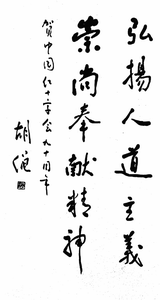 弘揚人道主義
崇尚奉献精神
賀中国红十字会九十周年
胡绳